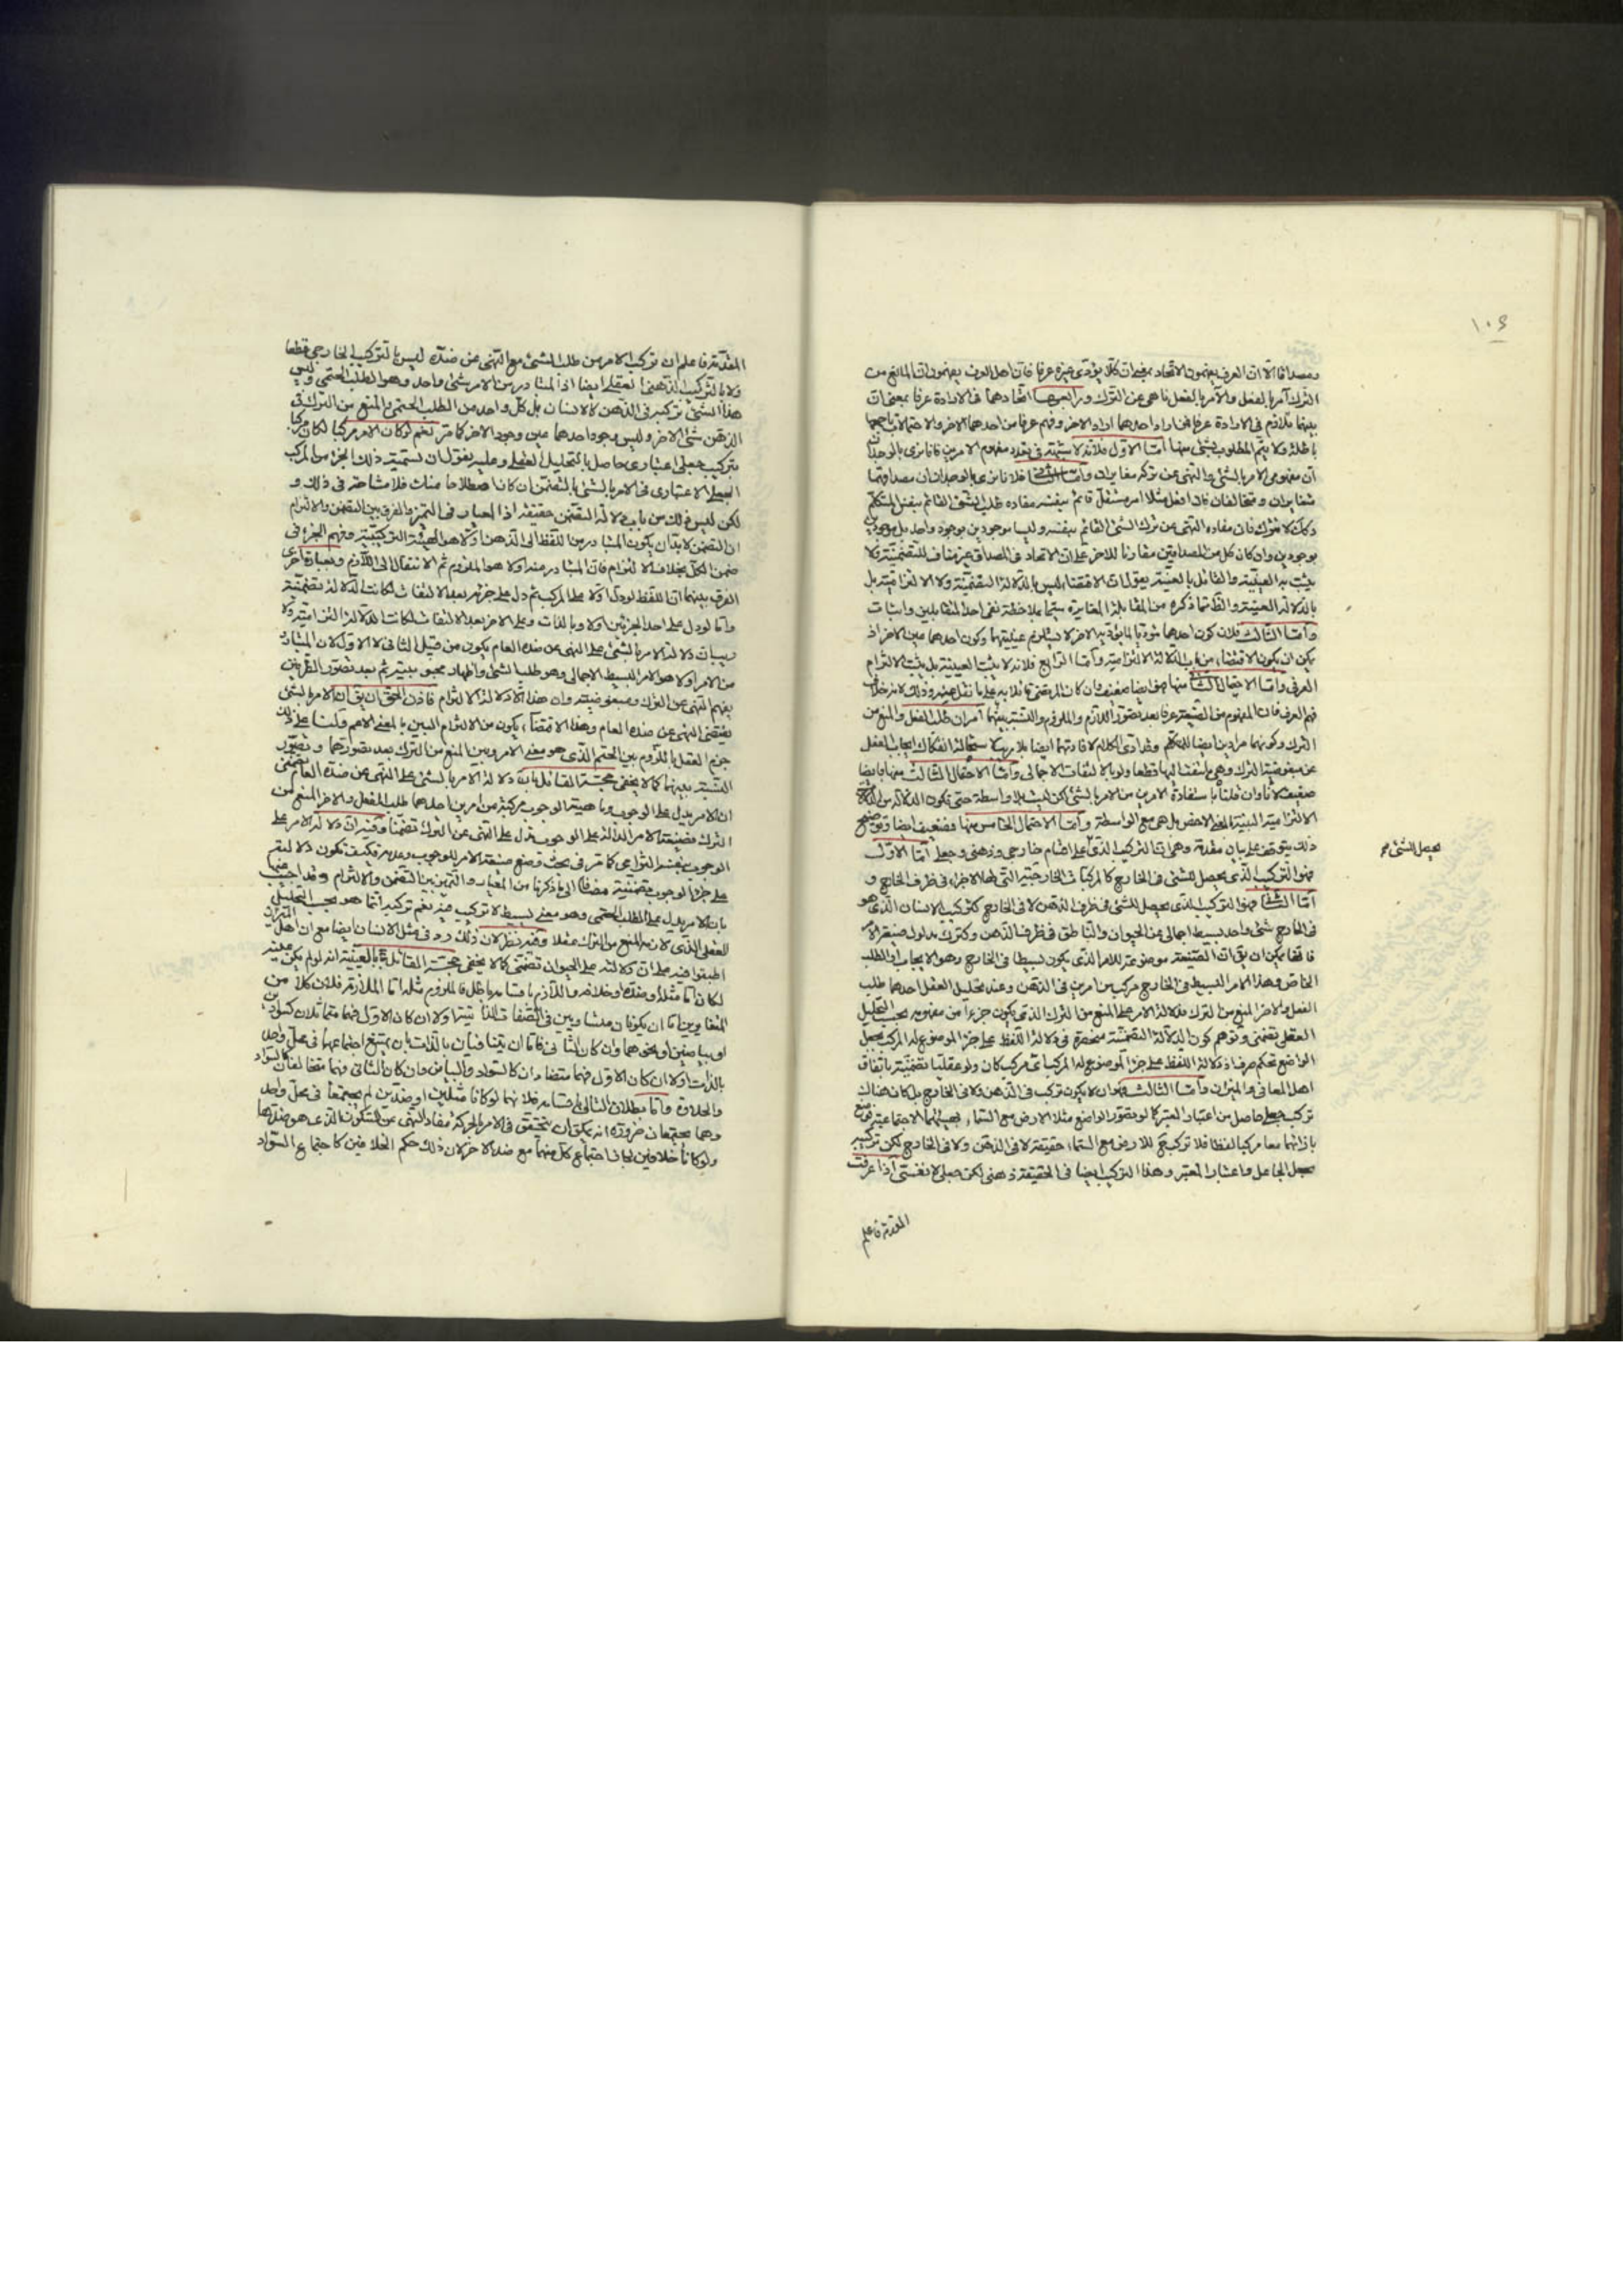 ١٠٤
ومصداقا الا ان العرف يفهمون الاتحاد بمعنى ان كلا يؤدى غيره عرفا فان اهل العرف يفهمون ان المانع من
الترك آمر بالفعل والآمر بالفعل ناهى عن الترك ورابعها اتحادهما فى الارادة عرفا بمعنى ان
بينهما تلازم فى الارادة عرفا فمن اراد احدهما اراد الاخر وفهم عرفا من احدهما الاخر والاحتمالات باجمعها
باطلة ولا يتم المطلوب بشئ منها اما الاول فلانه لا شبهة فى تعدد مفهوم الامرين فانا نرى بالوجدان
ان مفهومى الامر بالشئ والنهى عن تركه متغايران واما الثانى فلانا نرى بالوجدان ان مصداقهما
متغايران ومتخالفان فان افعل مثلا امر مستقل قائم بنفسه مفاده طلب الشئ القائم بنفس المتكلم
وكك لا تترك فان مفاده النهى عن ترك الشئ القائم بنفسه وليسا موجودين بوجود واحد بل موجودان
بوجودين وان كان كل من المصداقين مقارنا للاخر على ان الاتحاد فى المصداق غير مناف للتضمنية فلا
يثبت به العينية والقائل بالعينية يقول ان الاقتضاء ليس بالدلالة التضمنية ولا الالتزامية بل
بالدلالة العينية والظ مما ذكره من المقابلة المغايرة سيما بملاحظة نفى احد المتقابلين واثبات
واما الثالث فلان كون احدهما مؤديا لما يؤديه الاخر لا يستلزم عينيتهما وكون احدهما عين الاخر اذ
يمكن ان يكون الاقتضاء من باب الدلالة الالتزامية واما الرابع فلانه لا يثبت العينية بل يثبت الالتزام
العرفى واما الاحتمال الثانى منها فهو ايضا ضعيف وان كان المرتضى قائلا به على ما نقل عنه وذلك لانه خلاف
فهم العرف فان المفهوم من الصيغة عرفا بعد تصور اللازم والملزوم والنسبة بينهما امران طلب الفعل والمنع من
الترك وكونهما مرادين ايضا للمتكلم وقد ادى الكلام لافادتهما ايضا بلا ريب لاستحالة انفكاك ايجاب الفعل
عن مبغوضية الترك وهى ملتفت اليها قطعا ولو بالالتفات الاجمالى واما الاحتمال الثالث منها فايضا
ضعيف لانا وان قلنا باستفادة الامرين من الامر بالشئ لكن ليست بلا واسطة حتى تكون الدلالة من الدلالة
الالتزامية البينة بالمعنى الاخص بل هى مع الواسطة واما الاحتمال الخامس منها فضعيف ايضا وتوضيح
ذلك يتوقف على بيان مقدمة وهى ان التركيب الذى على اقسام خارجى وذهنى وجعلى اما الاول
يحصل للشئ صح
فهو التركيب الذى يحصل للشئ فى الخارج كالمركبات الخارجية التى لها الاجزاء فى ظرف الخارج و
اما الثانى فهو التركيب الذى يحصل للشئ فى ظرف الذهن لا فى الخارج كتركيب الانسان الذى هو
فى الخارج شئ واحد بسيط اجمالى من الحيوان والناطق فى ظرف الذهن وكتركب مدلول صيغة الامر
فانه يمكن ان يق ان الصيغة موضوعة للامر الذى يكون بسيطا فى الخارج وهو الايجاب او الطلب
الخاص وهذا الامر البسيط فى الخارج مركب من امرين فى الذهن وعند تحليل العقل احدهما طلب
الفعل والاخر المنع من الترك فدلالة الامر على المنع من الترك الذى يكون جزءا من مفهومه بحسب التحليل
العقلى تضمنى وتوهم كون الدلالة التضمنية منحصرة فى دلالة اللفظ على جزء الموضوع له المركب بجعل
الواضع تحكم صرف اذ دلالة اللفظ على جزء الموضوع له المركب اى مركب كان ولو عقليا تضمنية باتفاق
اهل المعانى والميزان واما الثالث فهو ان لا يكون تركيب فى الذهن ولا فى الخارج بل كان هناك
تركيب جعلى حاصل من اعتبار المعتبر كما لو تصور الواضع مثلا الارض مع السماء بهيئتهما الاجتماعية فوضع
بازائهما معا مركبا لفظا فلا تركيب للارض مع السماء حقيقة لا فى الذهن ولا فى الخارج لكن تركيب
بجعل الجاعل واعتبار المعتبر وهذا التركيب ايضا فى الحقيقة ذهنى لكن جعلى لا نفسى اذا عرفت
المقدمة فاعلم
المقدمة فاعلم ان تركيب الامر من طلب الشئ مع النهى عن ضده ليس بالتركيب الخارجى قطعا
ولا بالتركيب الذهنى العقلى ايضا اذ المتبادر من الامر شئ واحد وهو الطلب الحتمى وليس
هذا الشئ تركبه فى الذهن كالانسان بل كل واحد من الطلب الحتمى والمنع من الترك فى
الذهن شئ لاخر وليس وجود احدهما عين وجود الاخر كما مر نعم لو كان الامر مركبا لكان مركبا
بتركيب جعلى اعتبارى حاصل بالتحليل العقلى وعليه نقول ان تسمية ذلك الجزء من المركب
الجعلى الاعتبارى فى الامر بالشئ بالتضمن ان كان اصطلاحا منك فلا مشاحة فى ذلك و
لكن ليس ذلك من باب دلالة التضمن حقيقة اذ المعيار فى التميز والفرق بين التضمن والالتزام
ان التضمن لا بد ان يكون المتبادر من اللفظ الى الذهن اولا هو الهيئة التركيبية وفهم الجزء فى
ضمن الكل بخلاف الالتزام فان المتبادر منه اولا هو الملزوم ثم الانتقال الى اللازم وبعبارة اخرى
الفرق بينهما ان اللفظ لو دل اولا على المركب ثم دل على جزئه بعد الالتفات لكانت الدلالة تضمنية
واما لو دل على احد الجزئين اولا وبالذات وعلى الاخر بعد الالتفات لكانت الدلالة التزامية ولا
ريب ان دلالة الامر بالشئ على النهى عن ضده العام يكون من قبيل الثانى لا الاول لان المتبادر
من الامر اولا هو الامر البسيط الاجمالى وهو طلب الشئ واظهار محبوبيته ثم بعد تصور الطرفين
يفهم النهى عن الترك ومبغوضيته وان هذا الا دلالة الالتزام فاذن الحق ان يق ان الامر بالشئ
يقتضى النهى عن ضده العام وهذا الاقتضاء يكون من الالتزام البين بالمعنى الاعم وقلنا على ذلك
جزم العقل باللزوم بين الحتم الذى هو معنى الامر وبين المنع من الترك بعد تصورهما وتصور
النسبة بينهما كما لا يخفى حجة القائل بان دلالة الامر بالشئ على النهى عن ضده العام تضمنى
ان الامر يدل على الوجوب وماهية الوجوب مركبة من امرين احدهما طلب الفعل والاخر المنع من
الترك فصيغة الامر الدالة على الوجوب تدل على النهى عن الترك تضمنا وفيه ان دلالة الامر على
الوجوب بنفسه التزامى كما مر فى بحث وضع صيغة الامر للوجوب وعدمه فكيف تكون دلالته
على جزء الوجوب تضمنية مضافا الى ما ذكرنا من المعيار والتميز بين التضمن والالتزام وقد اجيب عنها
بان الامر يدل على الطلب الحتمى وهو معنى بسيط لا تركيب فيه نعم تركيبه انما هو بحسب التحليل
العقلى الذى لازمه المنع من الترك عقلا وفيه نظر لان ذلك وارد فى مثل الانسان ايضا مع ان اهل الميزان
اطبقوا فيه على ان دلالته على الحيوان تضمنى كما لا يخفى حجة القائل بالعينية انه لو لم يكن عينه
لكان اما مثله او ضده او خلافه واللازم باقسامه باطل فالملزوم مثله اما الملازمة فلان كلا من
المتغايرين اما ان يكونا متساويين فى الصفات الذاتية او لا وان كان الاول فهما متماثلان كسوادين
او بياضين او نحوهما وان كان الثانى فاما ان يتنافيان بالذات بان يمتنع اجتماعهما فى محل واحد
بالذات او لا وان كان الاول فهما متضادان كالسواد والبياض وان كان الثانى فهما متخالفان كالسواد
والحلاوة واما بطلان التالى باقسامه فلانهما لو كانا مثلين او ضدين لم يجتمعا فى محل واحد
وهما مجتمعان ضرورة انه يمكن ان يتحقق فى الامر بالحركة مفاد النهى عن السكون الذى هو ضدها
ولو كانا خلافين لجاز اجتماع كل منهما مع ضد الاخر لان ذلك حكم الخلافين كاجتماع السواد